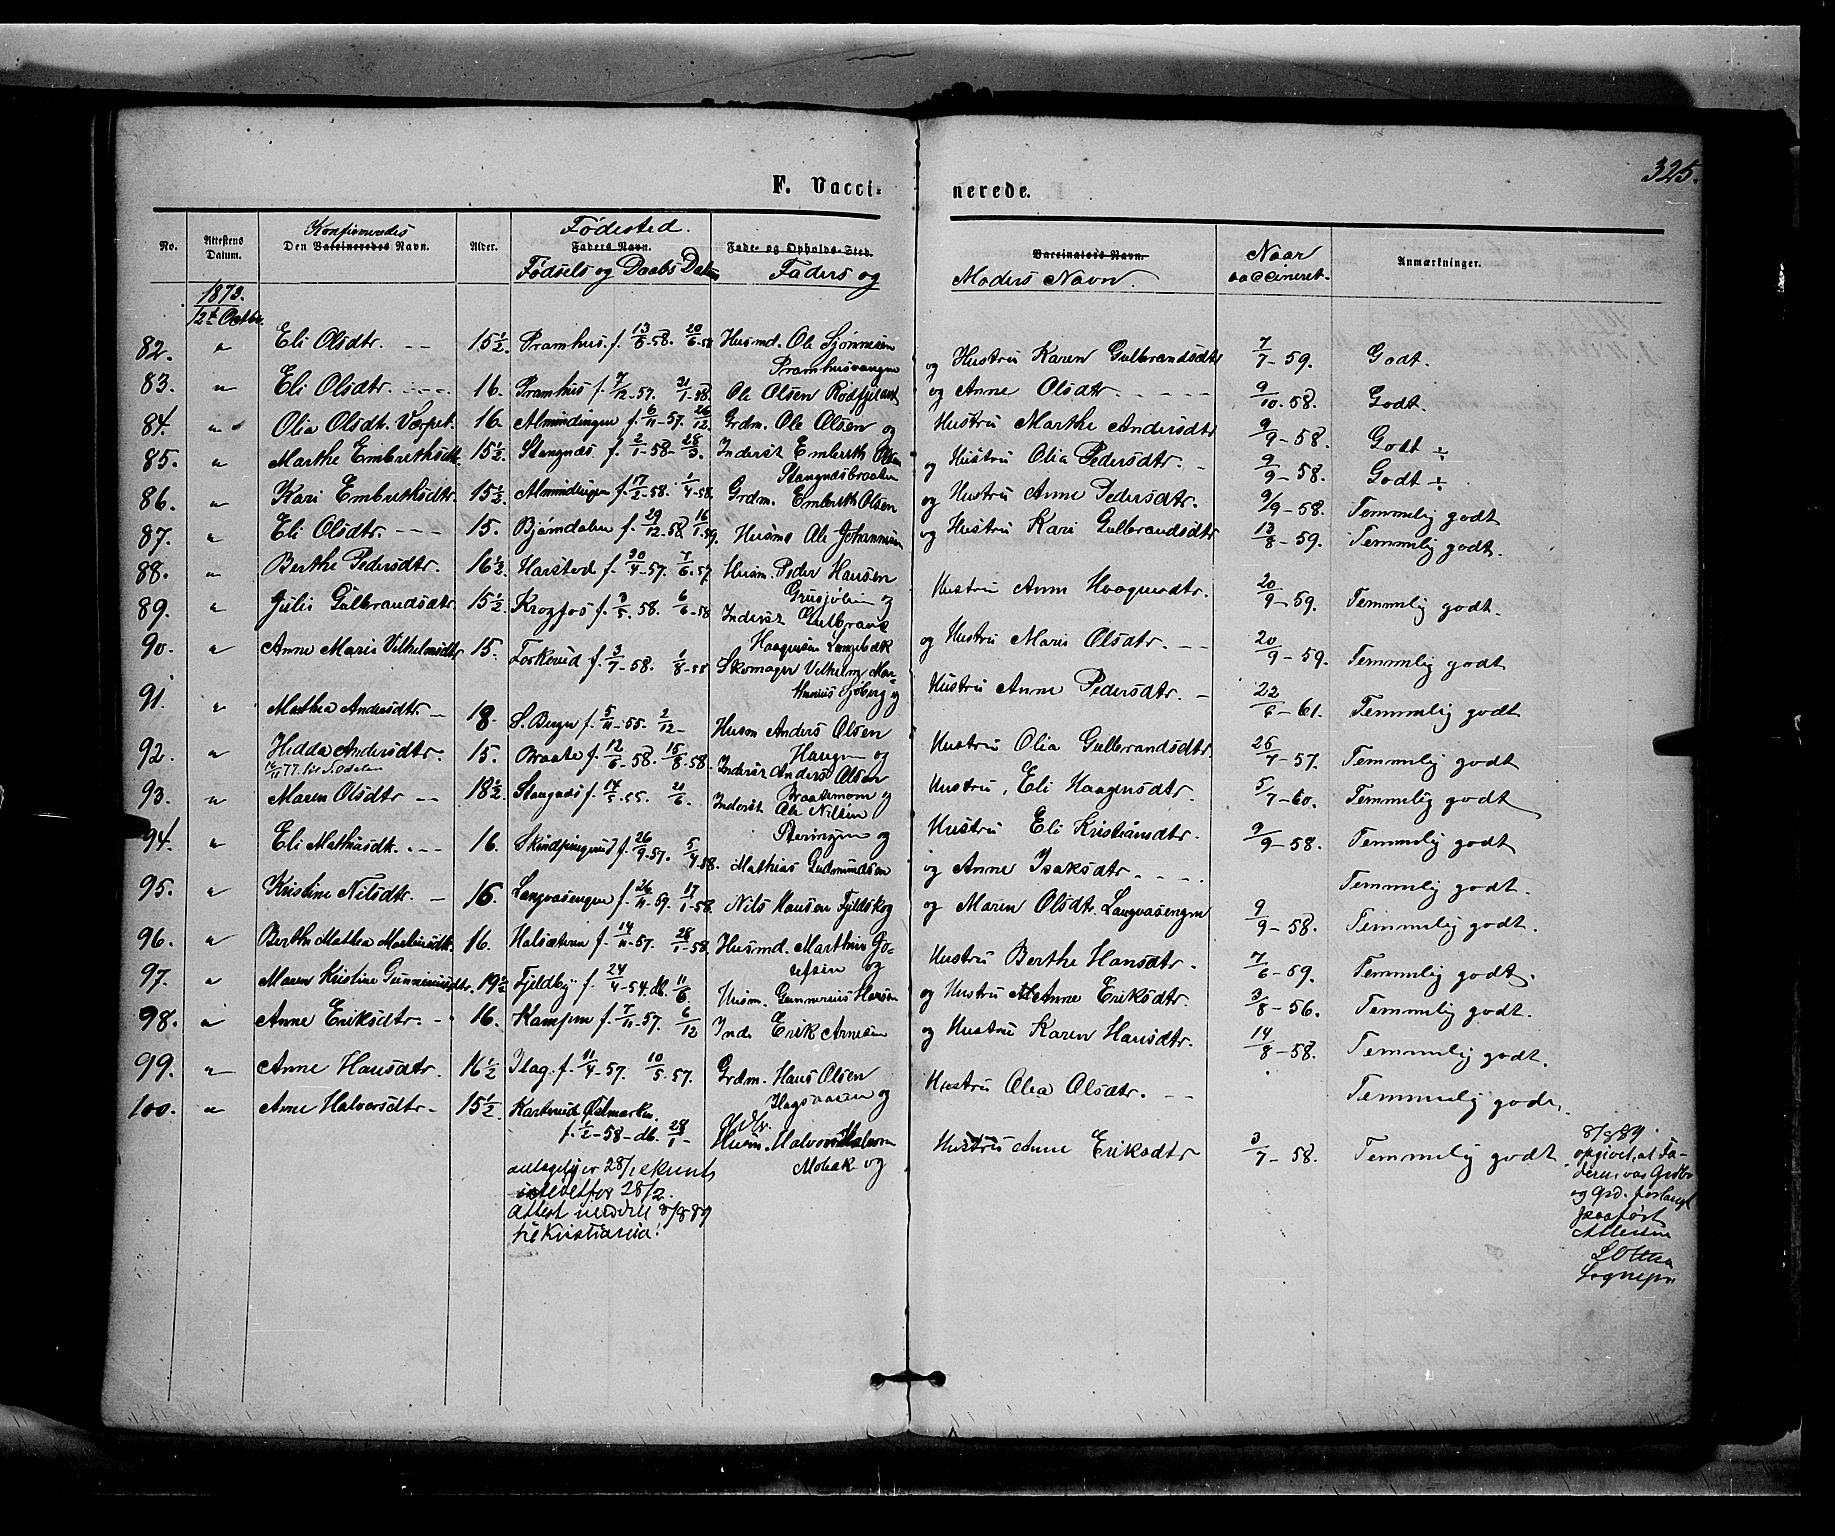 325.
F. Vacci- nerede.
No. Attestens Datum. Konfirmandes Den Vaccineredes Navn. Alder. Fødested. Faders Navn. Fødsels og Daabs Datum Føde- og Opholds-Sted. Faders og Vaccinators Navn. Moders Navn. Naar vaccineret. Anmærkninger.
1873.
12te Octbr.
82. " Eli Olsdtr. 15½. Pramhus. f. 13/6-58. 20/6-58 Husmd. Ole
Pramhusvangen og Hustru Karen Gulbrandsdtr 7/7-59. Godt.
83. " Eli Olsdtr. 16. Pramhus f. 7/12-57. 21/1-58. Ole Olsen og Anne Olsdtr. 9/10-58. Godt.
84. " Olia Olsdt. 16. Almindingen f. 6/11-57. 26/12 Grdm. Ole Olsen og Hustru Marthe Andersdtr 9/9-58. Godt ÷
85. " Marthe Embrethsdt. 15½. Stangnæs f. 2/1-58- 28/3. Inderst Embreth Olsen
Stangnæsbraaten og Hustru Olia Pedersdtr. 9/9-58. Godt ÷
86. " Kari Embrethsdtr. 15½. Almindingen f. 17/2-58. 1/4-58. Grdm. Embreth Olsen og Hustru Anne Pedersdtr. 9/9-58. Temmelig godt
87. " Eli Olsdtr. 15. Bjørndalen f. 29/12-58 16/1-59. Husm. Ole Johannesen og Hustru Kari Gulbrandsdtr 13/8-59. Temmelig godt.
88. " Berthe Pedersdtr. 16½. Harstad f. 30/4-57. 7/6-57 Husm. Peder Hansen
og Hustru Anne 20/9-59. Temmelig godt.
89. " Julie Gulbrandsdtr. 15½. Krogfos f. 3/5. 58. 6/6-58 Inderst Gulbrand
Haagensen Langebæk og Hustru Marie Olsdtr. 20/9-59. Temmelig godt
90. " Anne Marie Vilhelmsdtr 15. f. 3/7-58. 1/8-58 Skomager Vilhelm
Sjøberg og Hustru Anne Pedersdtr. 22/6-61. Temmelig godt
91. " Mathea Andersdtr. 18. S. Berger f. 5/11-55. 2/12- Husm Anders Olsen
Haugen og Hustru Olia Gulbrandsdtr. 26/7-57. Temmelig godt
92. " Hedda Andersdtr. 15. Braate f. 12/6-58. 15/8-58. Inderst Anders Olsen
77. til S. Odalen
Braatemoen og Hustru, Eli Haagensdtr. 5/7-60. Temmelig godt
93. " Maren Olsdtr 18½. Stangnæs f. 14/5-55. 21/6. Inderst Ole Nilsen
og Hustru Eli Kristiansdtr. 9/9-58. Temmelig godt
94. " Eli Mathiasdt. 16. f. 26/9-57. 5/4-58. Mathias Gudmundsen og Anne Isaksdtr. Temmelig godt.
95. " Kristine Nilsdtr. 16. Langvasengen f. 26/11-59. 17/1-58. Nils Hansen Fjeldskog og Maren Olsdtr. Langvasengen 9/9-58. Temmelig godt.
96. " Berthe Mathea 16. Halsæteren f. 14/11-57. 28/1-58. Husmd. Marthin Jo-
sefsen og Hustru Berthe Hansdtr. 7/6-59. Temmelig godt.
97. " Maren Kristine 19½ Fjeldby f. 24/4-54. db. 11/6. Husm. Gunnerius Hansen og Hustru Anne Eriksdtr. 3/8-56. Temmelig godt.
98. " Anne Eriksdtr. 16. Kampen f. 7/11-57. 6/12 Ind. Erik Arnesen og Hustru Karen Hansdtr. 14/8-58. Temmelig godt.
99. " Anne Hansdtr. 16½ Ilag. f. 11/4-57. 10/5. 57. Grdm. Hans Olsen
Ilagsaasen og Hustru Olea Olsdtr. Temmelig godt.
100. " Anne Halvorsdtr. 15½ Karterud Østmarken.
f. ½-58-db. 28/1- Husm. Halvor
og Hustru Anne Eriksdtr 3/7-58. Temmelig godt
antagelig er 28/1 skrevet
istedetfor 28/2.
Attest meddelt 8/8 89
til Kristiania!
8/8 89.
opgivet, at Fa-
deren, var
og
paaført
Attesten
Sognepr